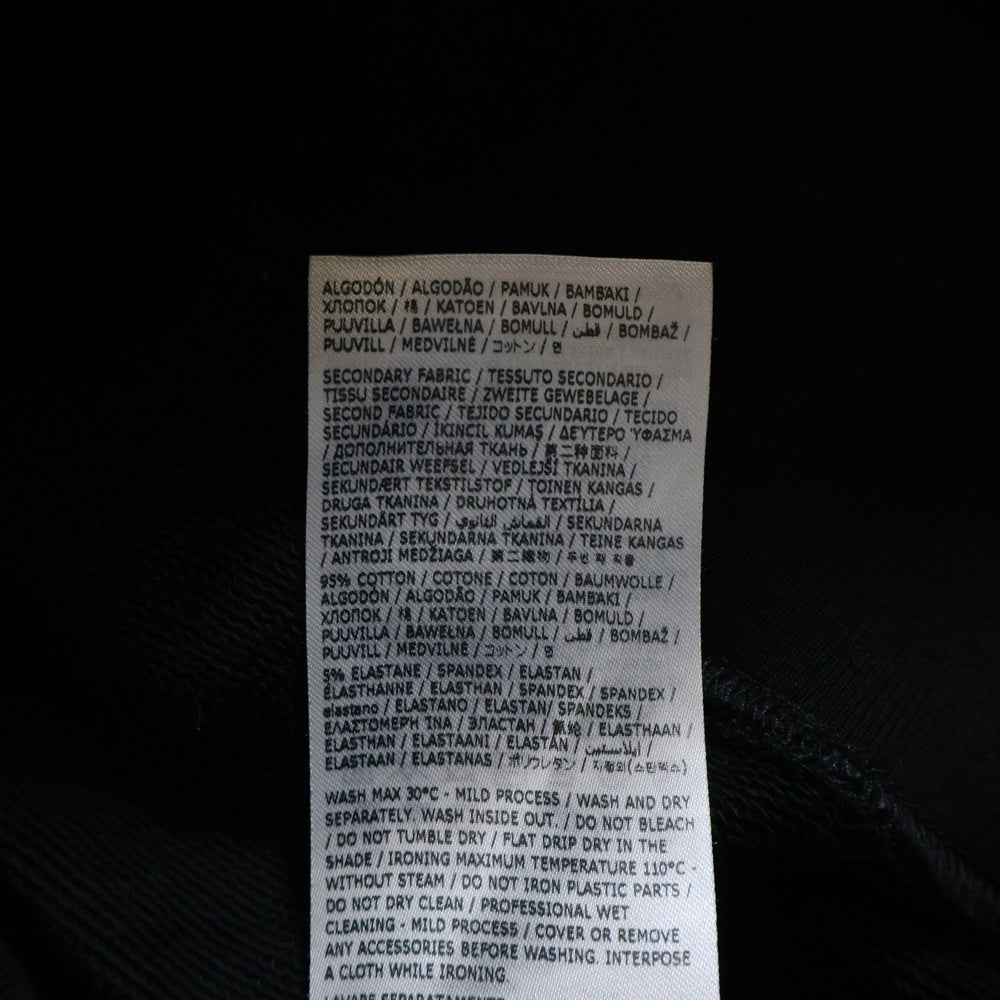 ALGODÓN / ALGODÃO / PAMUK / BAMBAKI /
ХЛОПОК / 棉 / KATOEN / BAVLNA / BOMULD /
PUUVILLA / BAWEŁNA / BOMULL / قطن / BOMBAŽ /
PUUVILL / MEDVILNĖ / コットン / 면
SECONDARY FABRIC / TESSUTO SECONDARIO /
TISSU SECONDAIRE / ZWEITE GEWEBELAGE /
SECOND FABRIC / TEJIDO SECUNDARIO / TECIDO
SECUNDÁRIO / İKINCIL KUMAŞ / ΔΕΥΤΕΡΟ ΎΦΑΣΜΑ
/ ДОПОЛНИТЕЛЬНАЯ ТКАНЬ / 第二种面料 /
SECUNDAIR WEEFSEL / VEDLEJŠÍ TKANINA /
SEKUNDÆRT TEKSTILSTOF / TOINEN KANGAS /
DRUGA TKANINA / DRUHOTNÁ TEXTÍLIA /
SEKUNDÄRT TYG / القماش الثانوي / SEKUNDARNA
TKANINA / SEKUNDARNA TKANINA / TEINE KANGAS
/ ANTROJI MEDŽIAGA / 第二織物 / 두번 째 직물
95% COTTON / COTONE / COTON / BAUMWOLLE /
ALGODÓN / ALGODÃO / PAMUK / BAMBAKI /
ХЛОПОК / 棉 / KATOEN / BAVLNA / BOMULD /
PUUVILLA / BAWEŁNA / BOMULL / قطن / BOMBAŽ /
PUUVILL / MEDVILNĖ / コットン / 면
5% ELASTANE / SPANDEX / ELASTAN /
ÉLASTHANNE / ELASTHAN / SPANDEX / SPANDEX /
elastano / ELASTANO / ELASTAN/ SPANDEKS /
ΕΛΑΣΤΟΜΕΡΗ ΊΝΑ / ЭЛАСТАН / 氨纶 / ELASTHAAN /
ELASTHAN / ELASTAANI / ELASTAN / إيلاستين /
ELASTAAN / ELASTANAS / ポリウレタン / 지정외(스판덱스)
WASH MAX 30°C - MILD PROCESS / WASH AND DRY
SEPARATELY. WASH INSIDE OUT. / DO NOT BLEACH
/ DO NOT TUMBLE DRY / FLAT DRIP DRY IN THE
SHADE / IRONING MAXIMUM TEMPERATURE 110°C -
WITHOUT STEAM / DO NOT IRON PLASTIC PARTS /
DO NOT DRY CLEAN / PROFESSIONAL WET
CLEANING - MILD PROCESS / COVER OR REMOVE
ANY ACCESSORIES BEFORE WASHING. INTERPOSE
A CLOTH WHILE IRONING.
LAVARE SEPARATAMENTE